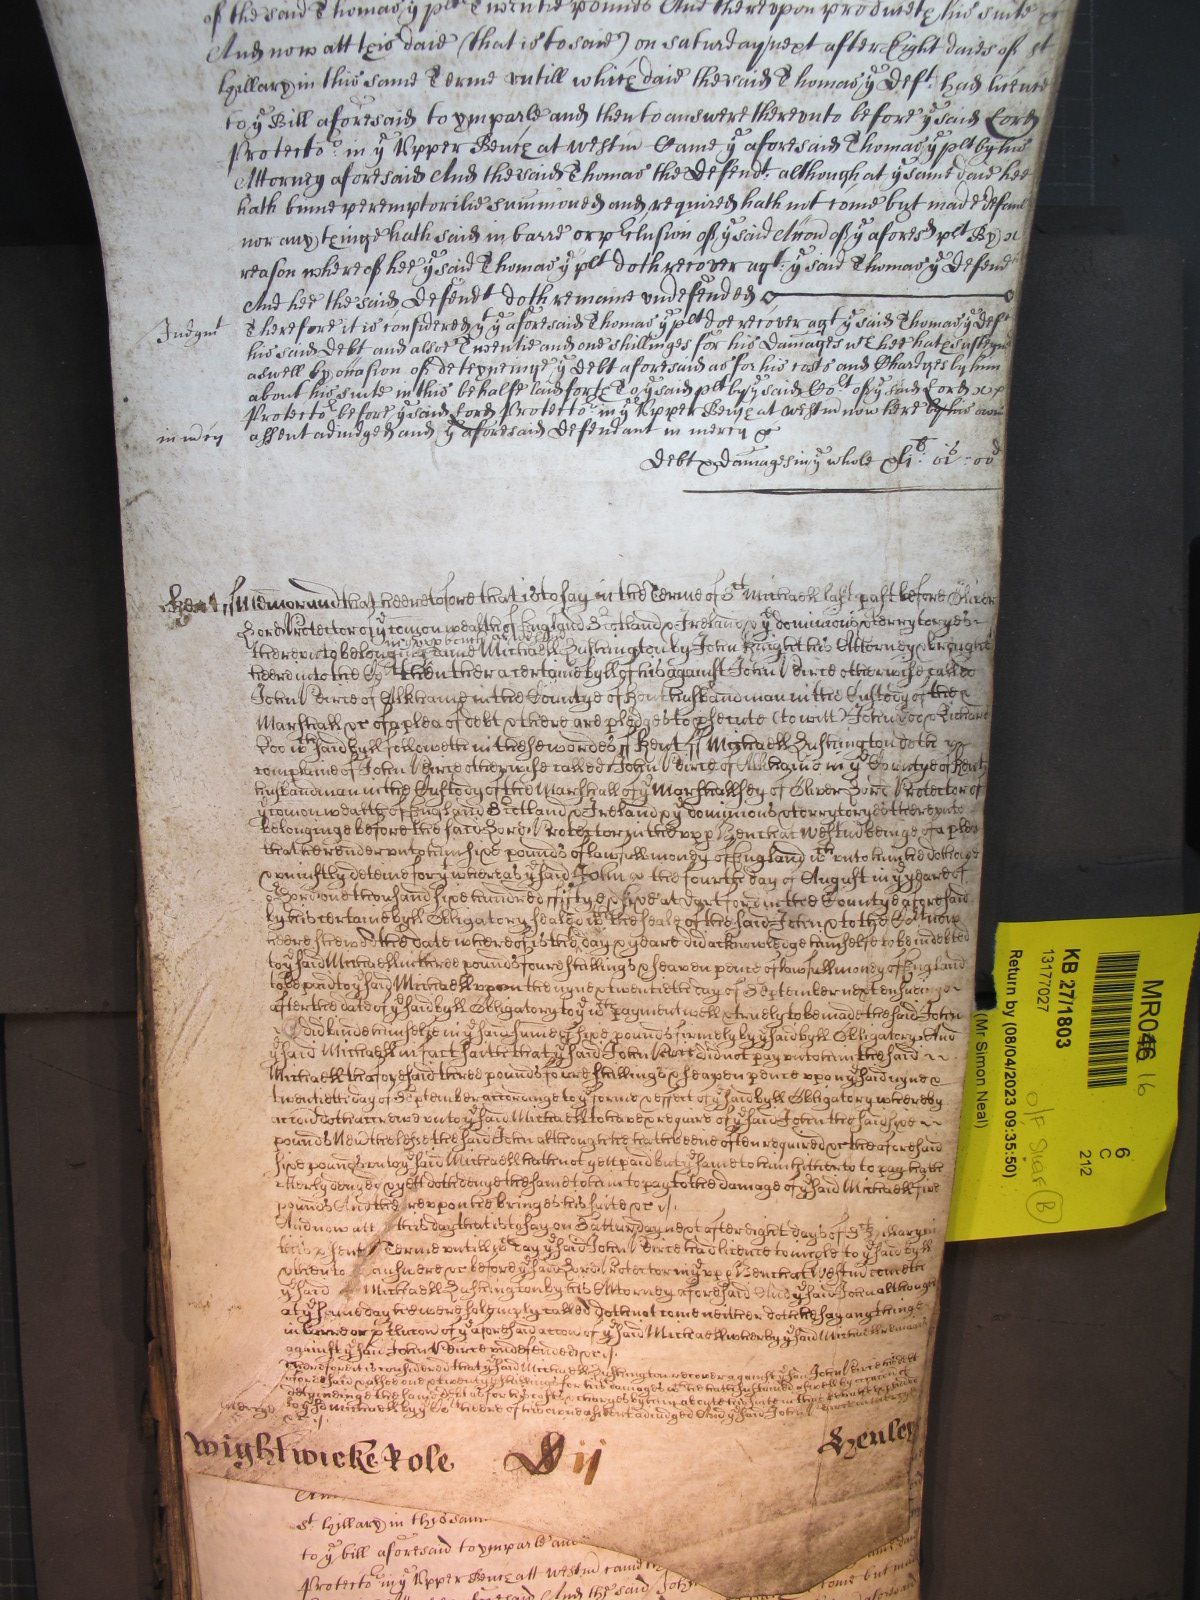 of the said Thomas yͤ plᵗ Twentie pounds And thereupon produceth his suite
And now att this daie (that is to saie) on Saturday next after Eight daies of Sᵗ
Hillary in this same Terme untill which daie the said Thomas yͤ Defᵗ had licence
to yͤ Bill aforesaid to ymparle and then to answere thereunto before yͤ said Lord
Protectoʳ in yͤ Upper Bench at Westm̄ Came yͤ aforesaid Thomas yͤ plᵗ by his
Attorney aforesaid And the said Thomas the Defendᵗ although at yͤ same daie hee
hath binne peremptorilie summoned and required hath not come but made default
nor any thinge hath said in barre or p̱clusion of yͤ said Acc̄on of yͤ aforesᵈ plᵗ By
reason whereof hee yͤ said Thomas yͤ plᵗ doth recover agᵗ yͤ said Thomas yͤ Defendᵗ
And hee the said Defendᵗ doth remaine undefended
Judgmᵗ Therefore it is considered yᵗ yͤ aforesaid Thomas yͤ plᵗ doe recover agᵗ yͤ said Thomas yͤ Defᵗ
his said Debt and alsoe Twentie and one shillinges for his Damages wᶜʰ hee hath susteyned
aswell by occasion of deteyneinge yͤ Debt aforesaid as for his costs and Chardges by him
about his suite in this behalfe laid forth To yͤ said plᵗ by yͤ said Coᵗ of yͤ said Lord
Protectoʳ before yͤ said Lord Protectoʳ in yͤ Upper Bench at Westm̄ now here by his owne
in m̄cy assent adiudged and yͤ aforesaid Defendant in mercy &c
Debt & damages in yͤ whole
Kent ss Memorand that heeretofore that is to say in the Terme of Sᵗ Michaell last past before Oliver
Lord Protector of yͤ comon wealth of England Scotland & Ireland & yͤ dominions & territoryes
in yͤ upp bench at Westm̄
thereunto belonginge came Michaell Lushington by John Knight his Attorney & brought
heere into the Coʳᵗ then there a certaine byll of his against John Peirce otherwise called
John Peirce of Elkhame in the Countye of Kent husbandman in the Custody of the
Marshall &c of a plea of debt & there are pledges to p̱secute (to witt) John Doe & Richard
Roe wᶜʰ said byll followeth in these wordes ss Kent ss Michaell Lushington doth
complaine of John Peirce otherwise called John Peirce of Elkhame in yͤ Countye of Kent
husbandman in the Custody of the Marshall of yͤ Marshallsey of Oliver Lord Protector of
yͤ comon wealth of England Scotland & Ireland & yͤ dominions & territoryes thereunto
belonginge before the said Lord Protector in the upp Bench at Westm̄ beinge of a plea
that he render unto him five pounds of lawfull money of England wᶜʰ unto him he doth owe
& uniustly deteine for yᵗ whereas yͤ said John &c the fourth day of August in yͤ yeare of
oʳ Lord one thousand six hundred fiftye & five at Dartford in the Countye aforesaid
by his certaine byll Obligatory sealed wᵗʰ the seale of the said John & to the Coʳᵗ now
heere shewed the date whereof is the day & yeare did acknowledge himselfe to be indebted
to yͤ said Michaell in three pounds foure shillings & seaven pence of lawfull money of England
to be paid to yͤ said Michaell uppon the nyne & twentieth day of September next ensuinge
after the date of yͤ said byll Obligatory to yͤ wᶜʰ payment well & truely to be made the said John
did binde himselfe in yͤ said summe of five pounds firmely by yͤ said byll Obligatory And
yͤ said Michaell in fact saith that yͤ said John Peirce did not pay unto him the said
Michaell the foresaid three pounds foure shillings & seaven pence uppon yͤ said nyne &
twentieth day of September accordinge to yͤ forme & effect of yͤ said byll Obligatory whereby
accion doth accrewe unto yͤ said Michaell to have & require of yͤ said John the said five
pounds Neverthelesse the said John although he hath beene often required &c the aforesaid
five pounds unto yͤ said Michaell hath not yett paid but yͤ same to him hitherto to pay hath
utterly denyed & yett doth denye the same to him to pay to the damage of yͤ said Michaell five
pounds And thereuppon he bringes his suite &c
And now att this day that is to say on Satturday next after eight days of Sᵗ Hillary in
this p̱sent Terme untill wᶜʰ day yͤ said John Peirce had licence to imp̱le to yͤ said byll
& then to answere &c before yͤ said Lord Protector in yͤ upp Bench at Westm̄ cometh
yͤ said Michaell Lushington by his Attorney aforesaid And yͤ said John although
at yͤ same day he were solemply called doth not come neither doth he say any thinge
in barre or p̱clusion of yͤ aforesaid accon of yͤ said Michaell whereby yͤ said Michaell remaines
against yͤ said John Peirce undefended &c
Therefore it is considered that yͤ said Michaell Lushington recover against yͤ said John Peirce his debt
aforesaid & alsoe one & twenty shillings for his damages wᶜʰ he hath sustained aswell by occasion of
detyninge the said debt as for his costs & charges by him about his suite in this behalfe
to yͤ said Michaell by yͤ Coʳᵗ heere of his owne assent adiudged And yͤ said John Peirce in mercye
&c
Wightwicke Role ij Henley
Sᵗ Hillary in this same
to yͤ bill aforesaid to ymparle and
Protectoʳ in yͤ Upper Bench att Westm̄ came
And the said John come but made
MR046 16
KB 27/1803
13177/027
Return by (08/04/2023 09:35:50)
(Mr Simon Neal)
6
C
212
O/F Shelf B